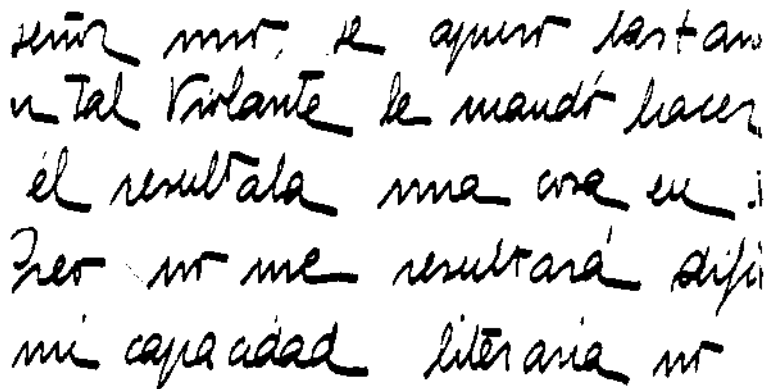 señor mío, se apuró bastan
un tal Violante le mandó hacer
él resultaba una cosa en
Pero no me resultará difí
mi capacidad literaria no